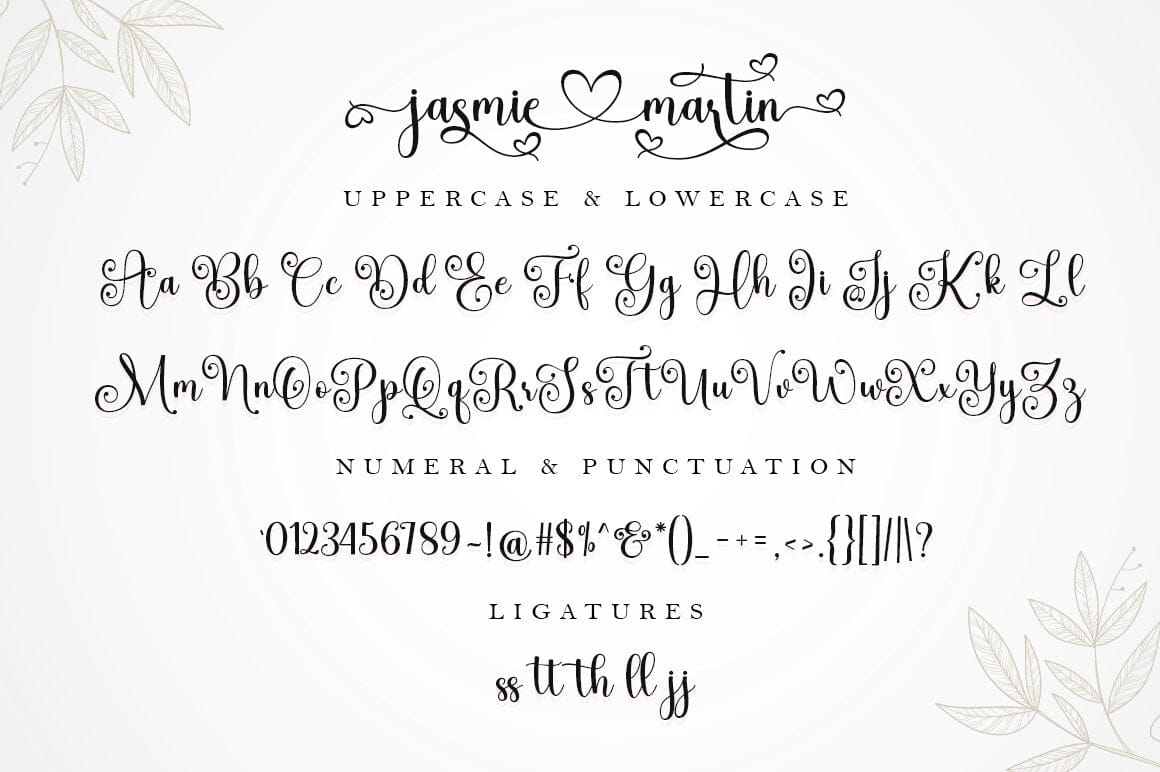 jasmie martin
UPPERCASE & LOWERCASE
Aa Bb Cc Dd Ee Ff Gg Hh Ii Jj Kk Ll
Mm Nn Oo Pp Qq Rr Ss Tt Uu Vv Ww Xx Yy Zz
NUMERAL & PUNCTUATION
`0123456789~!@#$%^&*()_-+=,<>.{}[]/|\?
LIGATURES
ss tt th ll jj